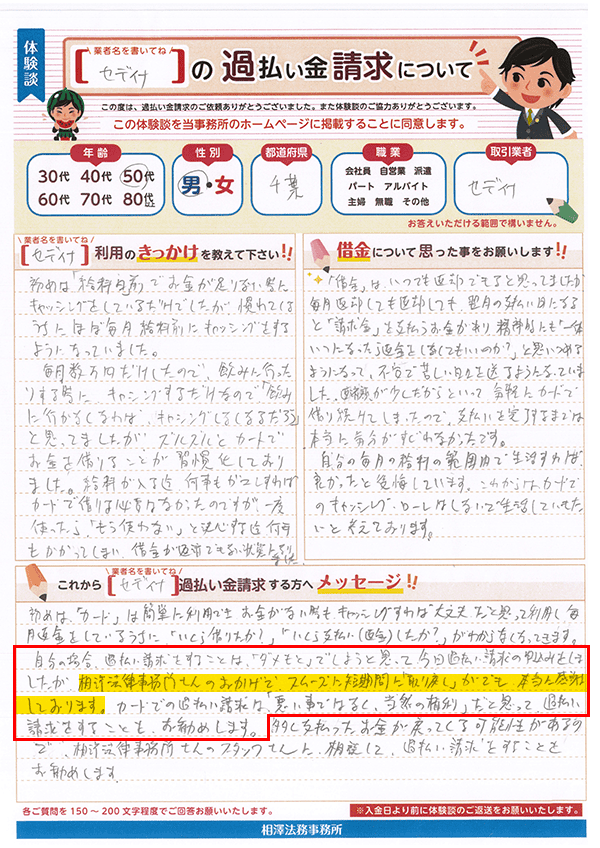 体験談
業者名を書いてね
[セディナ]の過払い金請求について
この度は、過払い金請求のご依頼ありがとうございました。また体験談のご協力ありがとうございます。
この体験談を当事務所のホームページに掲載することに同意します。
年齢
30代 40代 50代
60代 70代 80代以上
性別
男・女
都道府県
千葉
職業
会社員 自営業 派遣
パート アルバイト
主婦 無職 その他
取引業者
セディナ
お答えいただける範囲で構いません。
業者名を書いてね
[セディナ]利用のきっかけを教えて下さい!!
初めは「給料日前」でお金が足りない時に
キャッシングをしているだけでしたが 慣れてくる
うちにほぼ毎月給料前にキャッシングをする
ようになっていました。
毎月数万円だけしたので、飲みに行った
りする時に キャッシングするだけなので「飲み
に行かなくなれば、キャッシングしなくなるだろう」
と思ってましたが ズルズルと カートで
お金を借りることが 習慣化しており
ました。給料が入る迄 何事もがまんすれば
カードで借りる必要はなかったのですが、一度
使ったら「もう使わない」と決心する迄 何年
もかかってしまい、借金が返済できない状況になり
ました
借金について思った事をお願いします!!
「借金」は、いつでも返却できると思ってましたが
毎月返却しても返却しても 翌月の支払い日になる
と「請求金」を支払うお金があり 精神的にも「一体
いつになったら返金をしなくてもいいのか?」と思いつめる
ようになって、不安で苦しい日々を送るようになっていま
した。 が少しだからといって 気軽にカードで
借り続けてしまったので、支払いを完了するまでは
本当に気分がすぐれなかったです。
自分の毎月の給料の範囲内で生活すれば
良かったと後悔しています。これからはカードで
のキャッシング・ローンはしないで生活していきた
いと考えております。
業者名を書いてね
これから[セディナ]過払い金請求する方へメッセージ!!
初めは、「カード」は簡単に利用でき お金がない時も キャッシングすれば“大丈夫”などと思って利用し毎
月返金をしているうちに、“いくら借りたか?”“いくら支払い(返金)したか?”がわからなくなってきます。
自分の場合、過払い請求をすることは、「ダメもと」でしようと思って 今回過払い請求の申込みをしま
したが 相澤法律事務所さんのおかげで、スムーズに短期間に取り戻しができ 本当に感謝
しております。カードでの過払い請求は「悪い事ではなく、当然の権利」だと思って 過払い
請求をすることも お勧めします。 支払ったお金が戻ってくる可能性があるの
で、相澤法律事務所さんのスタッフさんに相談して、過払い請求をすることを
お勧めします。
各ご質問を150～200文字程度でご回答お願いいたします。
※入金日より前に体験談のご返送をお願いいたします。
相澤法務事務所